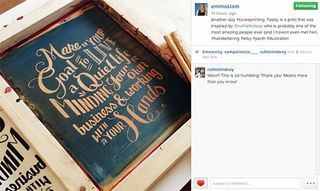 emmaslam
11 hours ago
Following
Another day #Screenprinting. Today is a print that was
inspired by @ruthielindsey who is probably one of the
most amazing people ever (and I haven't even met her).
#handlettering #etsy #perth #illustration
ruthielindsey and 8 others
like this.
ruthielindsey
Wow!! This is so humbling! Thank you! Means more
than you know!
Leave a comment...
Make it Your
Goal to LIVE
a Quiet Life
MINDING Your Own
business & working
WITH Your Hands
MINDING
business
WITH